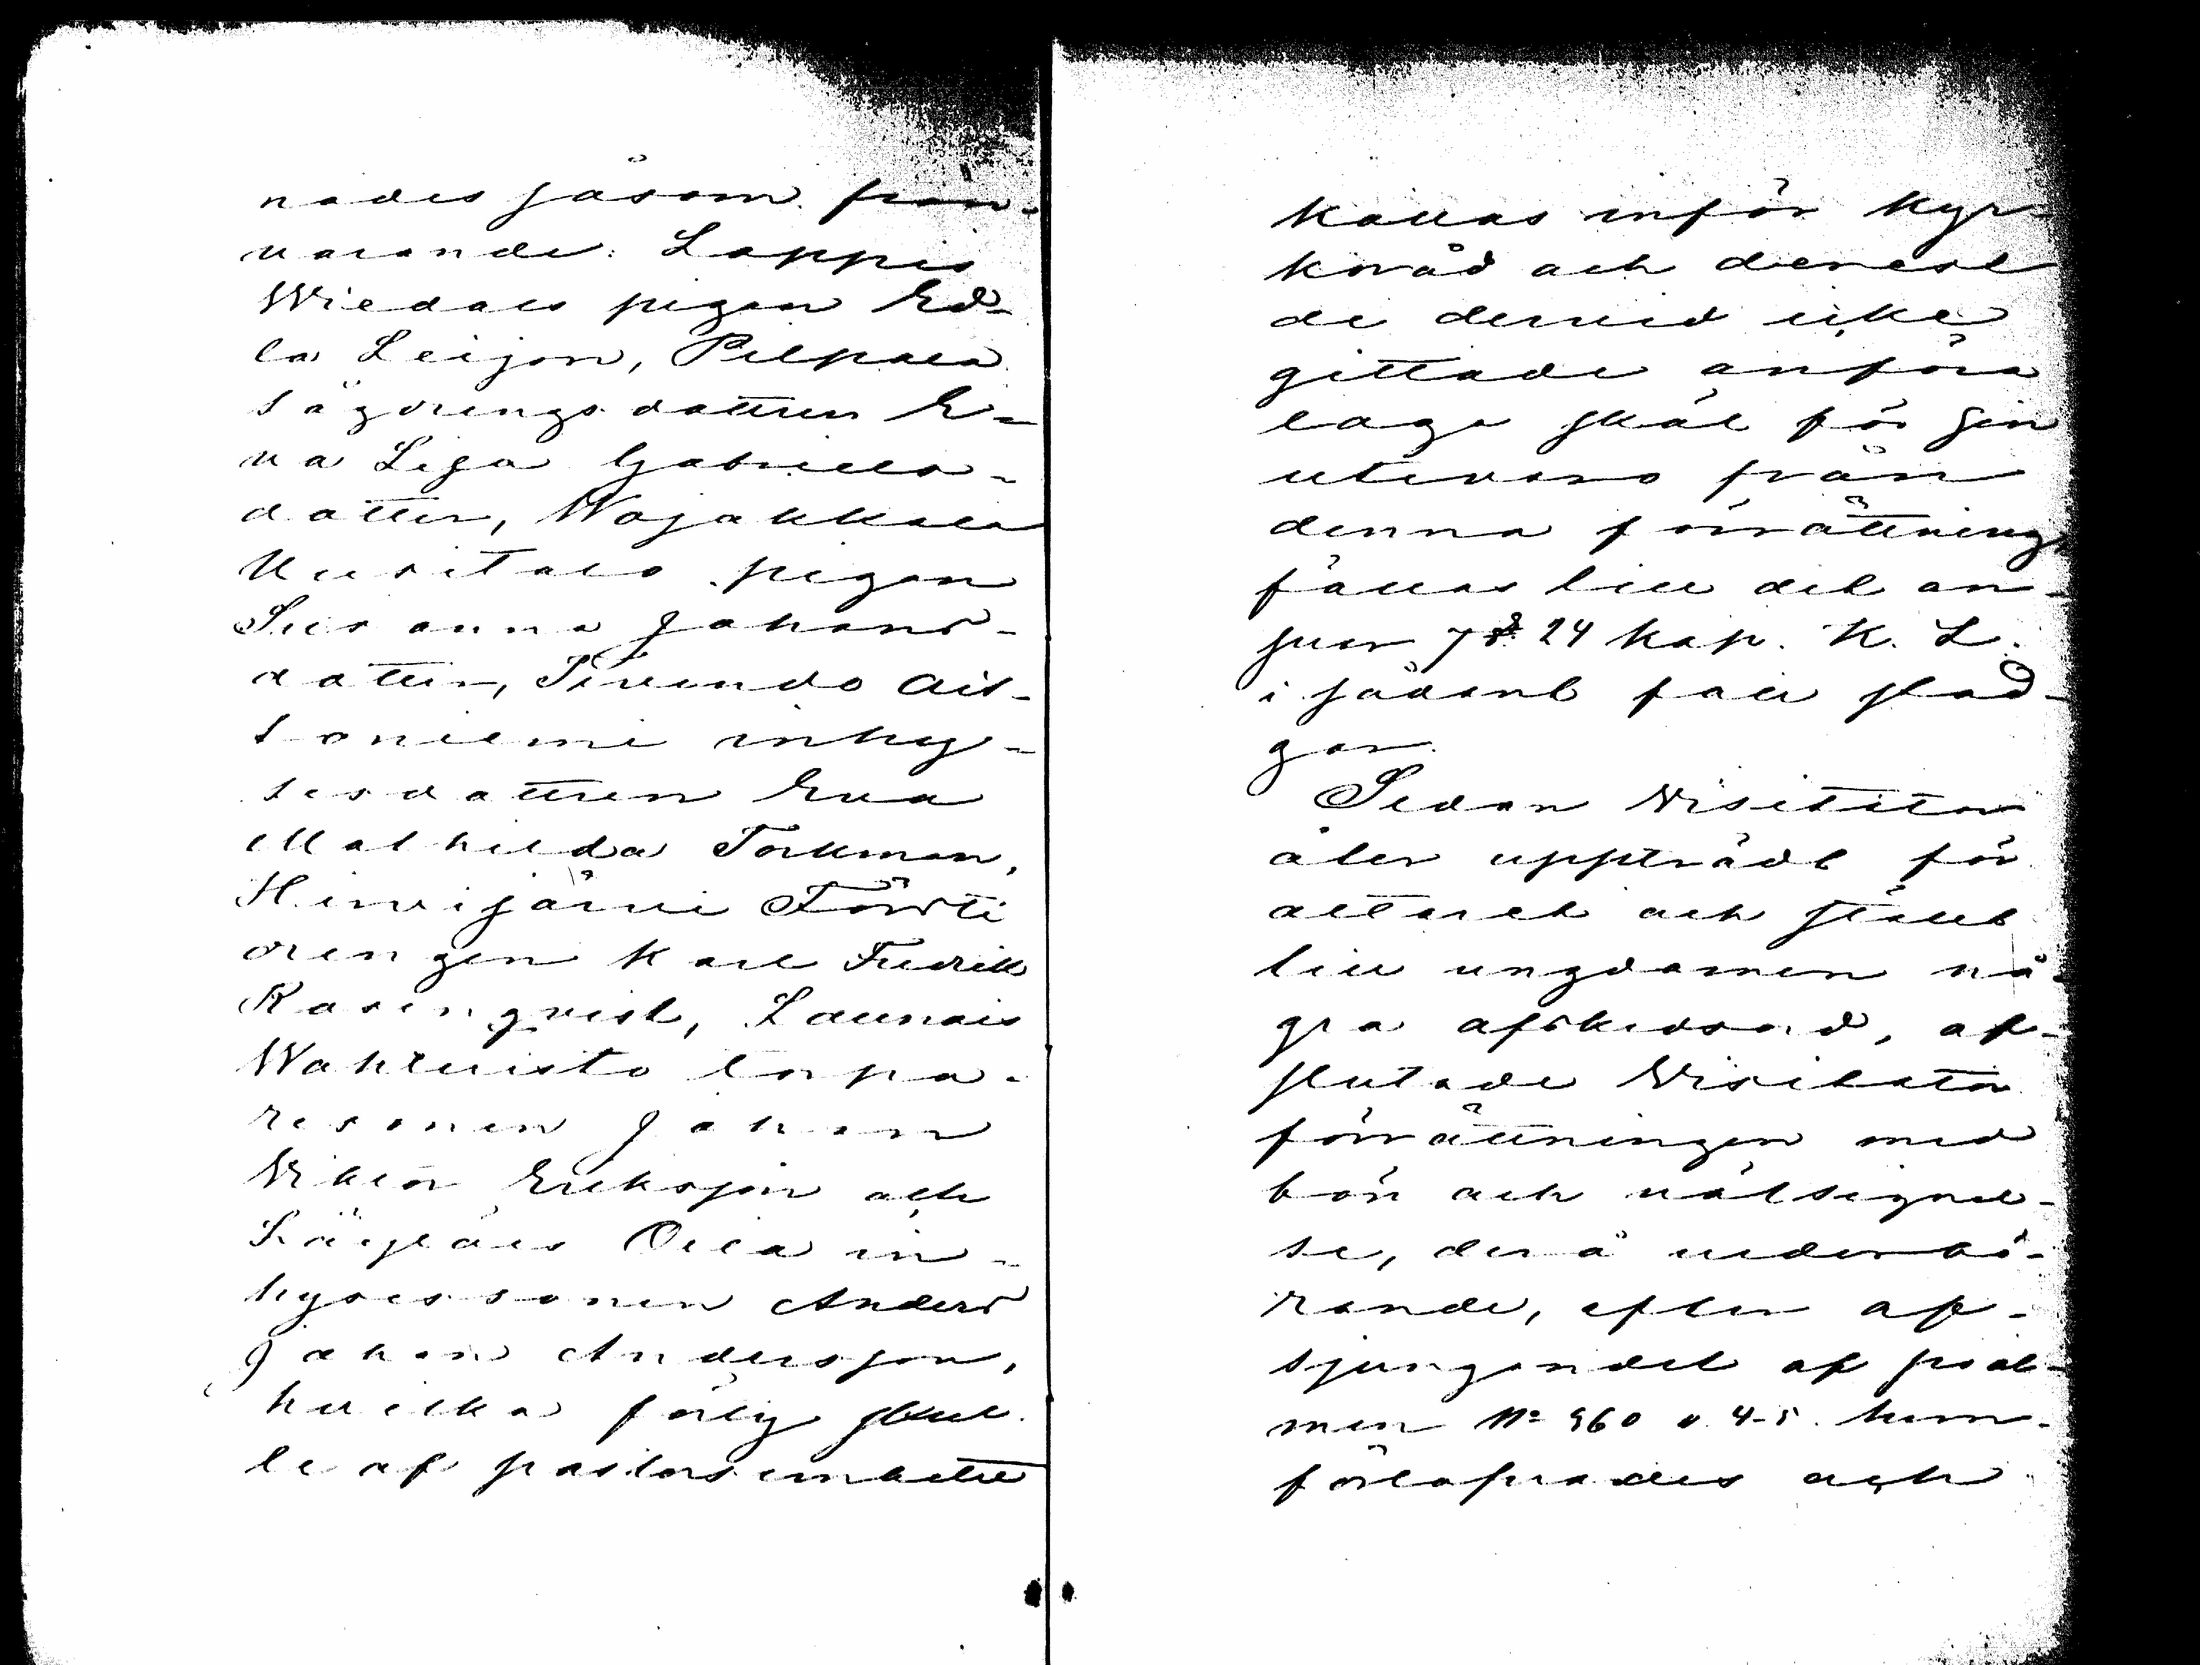 nades såsom från-
varande: Loppis
Wiedals pigan Ed-
la Leijon, Pilpala
sågdrengsdottren E-
va Lisa Gabriels-
dotter, Wojakkala
Uusitalo pigan
Susanna Johans-
dotter, Sirenoo Ait-
toniemi inhys-
sesdottren Eva
Mathilda Torkman,
Hirvijärvi Töreti
drengen Karl Fredrik
Rosenqvist, Launois
Wahteristo torpa-
resonen Johan
Viktor Eriksson och
Läyliäis Oila in-
hysessonen Anders
Johan Andersson,
hvilka förty skul-
le af pastorsembetet
kallas inför Kyr-
koråd och derest
de dervid icke
gittade anföra
laga skäl för sin
utevaro från
denna förrättning
fällas till det an-
svar 7 § 24 kap. K. L.
i sådant fall stad-
gar.
Sedan Visitator
åter uppträdt för
altaret och ställt
till ungdomen nå-
gra afskedsord, af-
slutade Visitator
förrättningen med
bön och välsignel-
se, derå vederbö-
rande, efter af-
sjungandet af psal-
men No 360 v. 4-5. hem-
förlofvades och